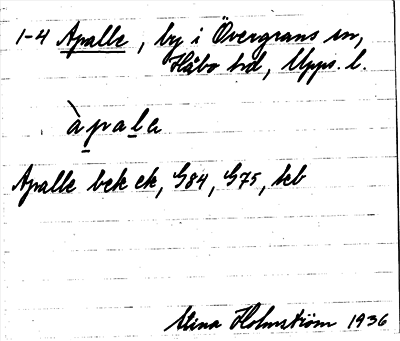 1-4 Apalle, by i Övergrans sn,
Håbo hd, Upps. l.
àpala
Apalle bek ek, G84, G75, hb
Stina Holmström 1936